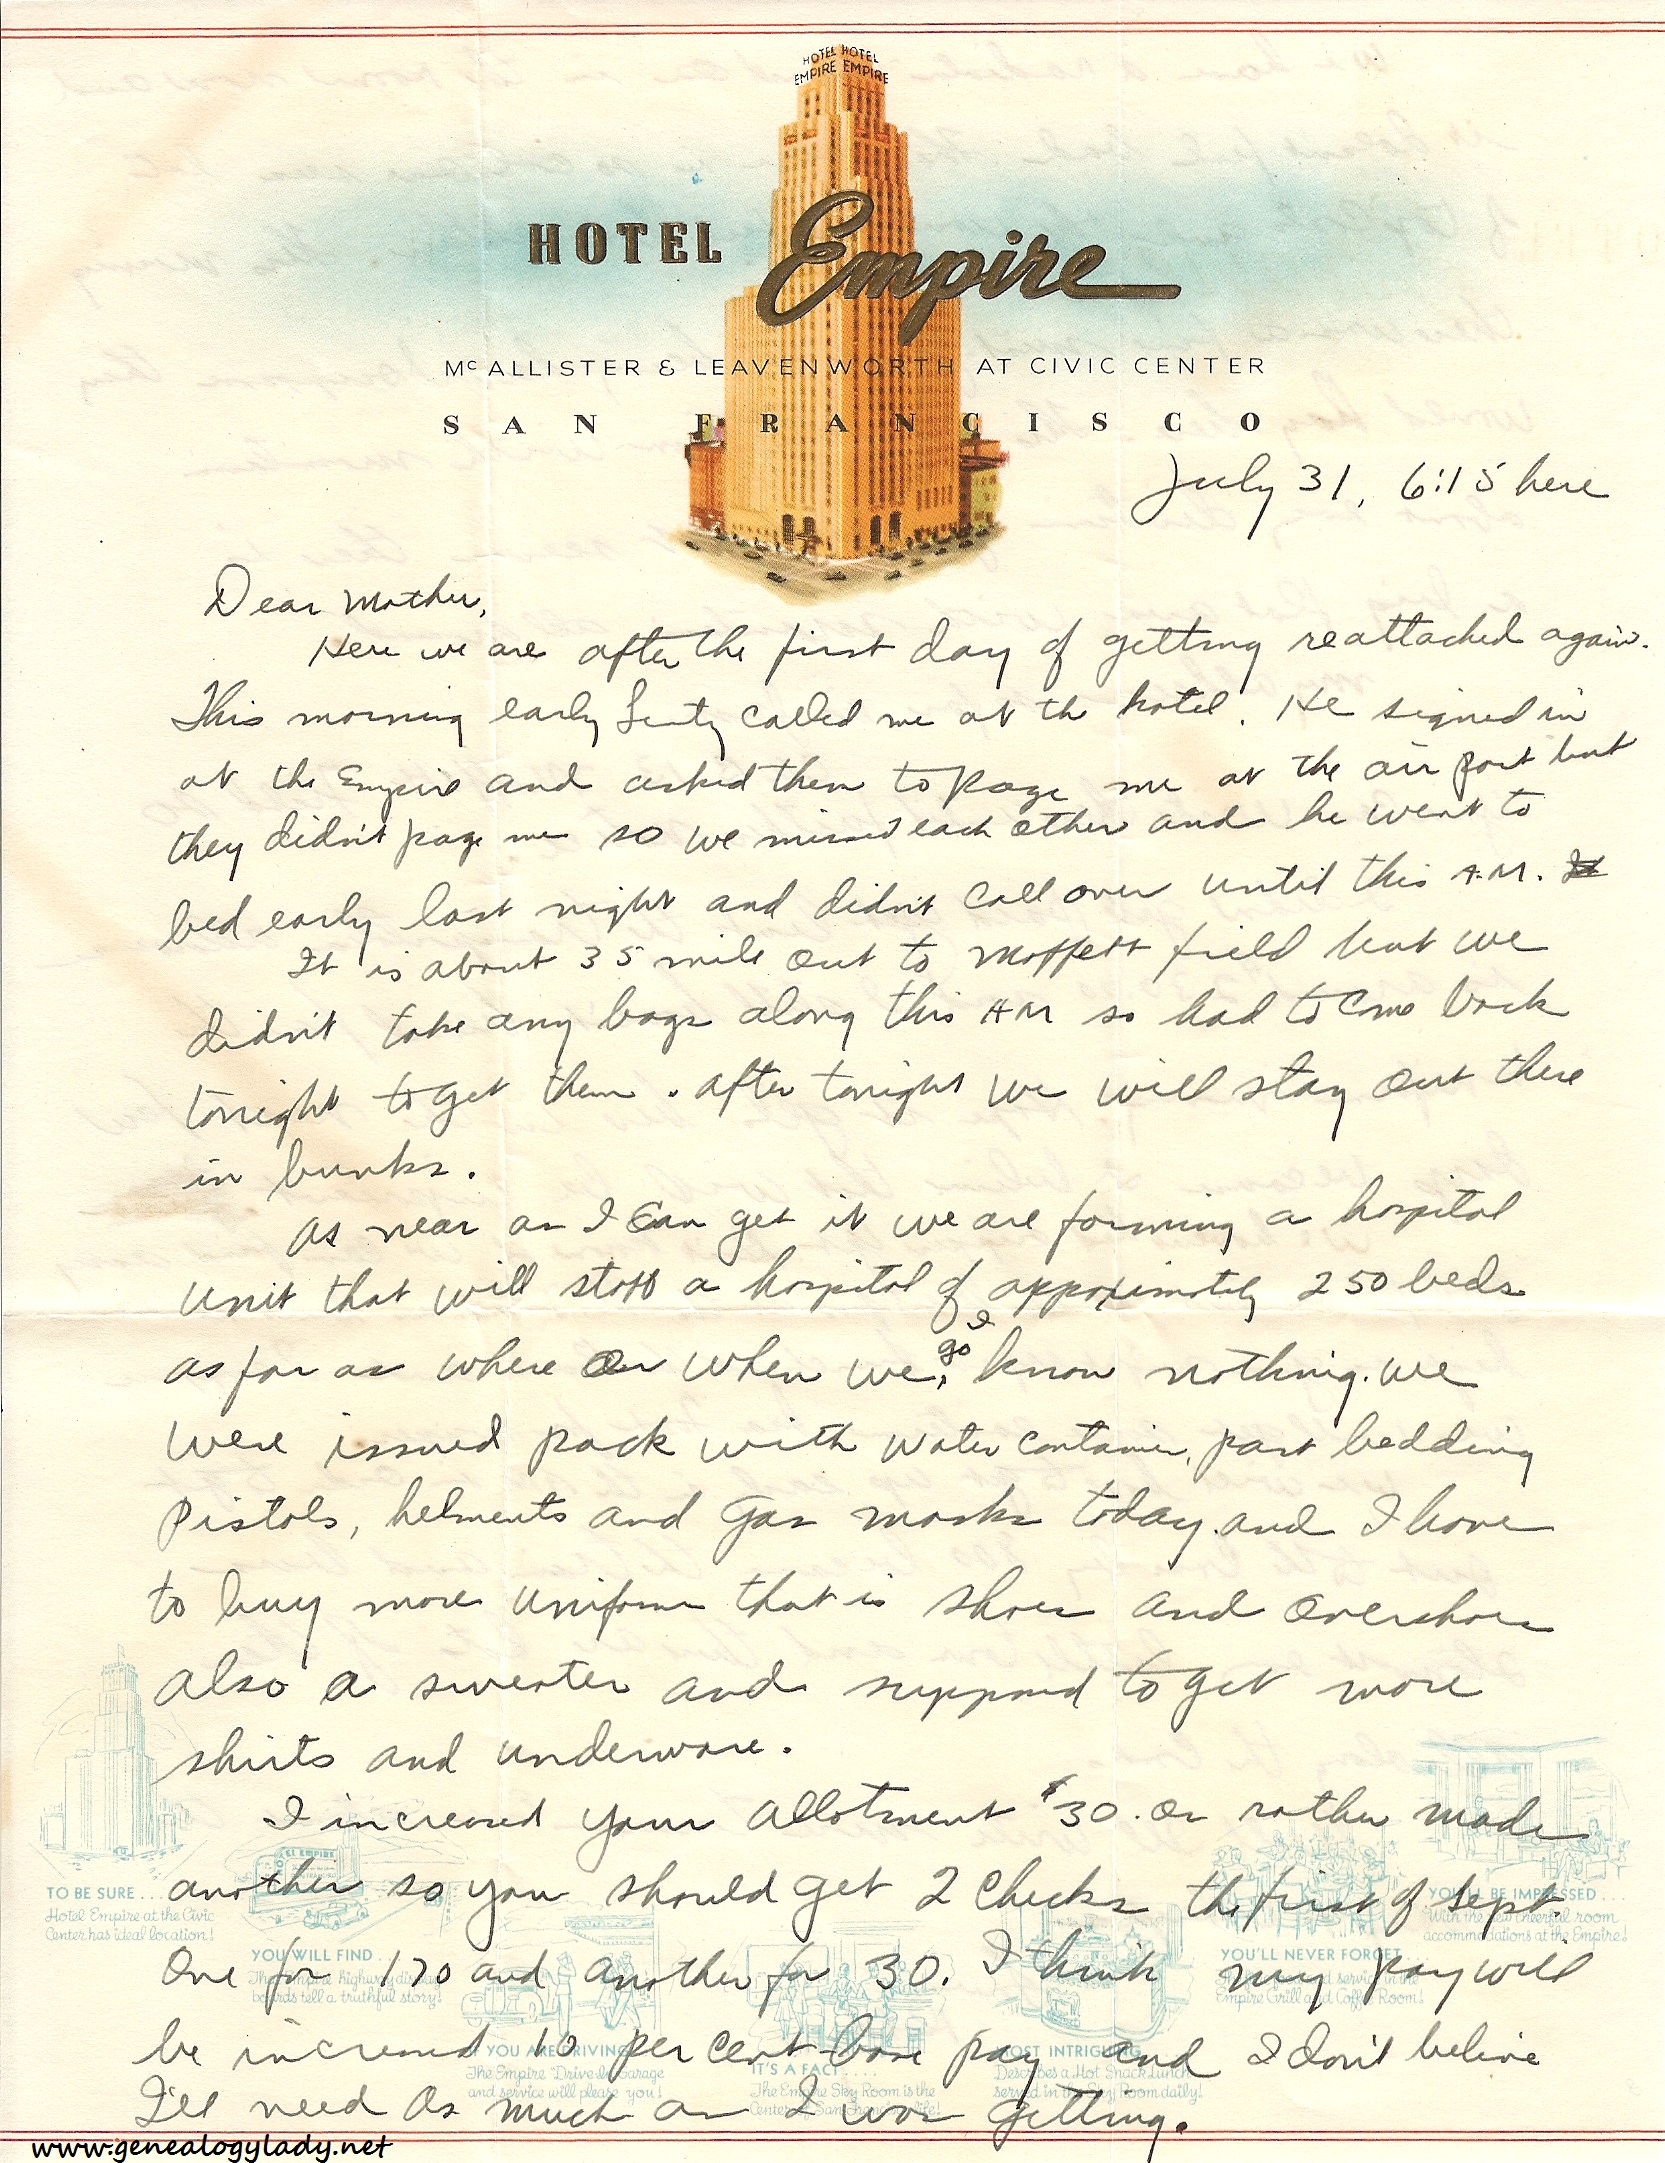 HOTEL HOTEL
EMPIRE EMPIRE
HOTEL Empire
McALLISTER & LEAVENWORTH AT CIVIC CENTER
SAN FRANCISCO
July 31, 6:15 here
Dear Mother,
Here we are after the first day of getting reattached again.
This morning early Lentz called me at the hotel. He signed in
at the Empire and asked them to page me at the air port but
they didn't page me so we missed each other and he went to
bed early last night and didn't call over until this A.M.
It is about 35 mile out to Moffett field but we
didn't take any bags along this AM so had to come back
tonight to get them. After tonight we will stay out there
in bunks.
As near as I can get it we are forming a hospital
unit that will staff a hospital of approximately 250 beds
as far as where or when we go I know nothing. We
were issued pack with water container, part bedding
Pistols, helments and gas masks today and I have
to buy more uniforms that is shoes and overshoes
also a sweater and supposed to get more
shirts and underware.
I increased your allotment $30. or rather made
another so you should get 2 checks the first of Sept.
One for 170 and another for 30. I think my pay will
be increased 10 per cent base pay and I don't belive
I'll need as much as I was getting.
TO BE SURE...
Hotel Empire at the Civic
Center has ideal location!
EL EMPIRE
YOU WILL FIND...
The Empire highway
boards tell a truthful story!
YOU ARE DRIVING
The Empire Drive-In Garage
and service will please you!
IT'S A FACT...
The Empire Sky Room is the
Center of San Francisco life!
MOST INTRIGUING
Describes a Hot Snack Lunch
served in the Sky Room daily!
YOU'LL NEVER FORGET...
service in the
Empire Grill and Coffee Room!
YOU'LL BE IMPRESSED...
With the cheerful room
accommodations at the Empire!
www.genealogylady.net